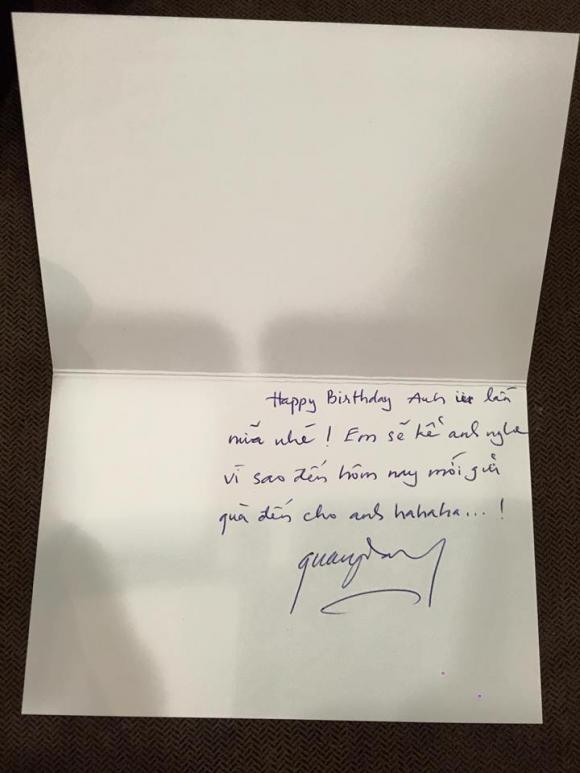 Happy Birthday Anh lần
nữa nhé! Em sẽ kể anh nghe
vì sao đến hôm nay mới gửi
quà đến cho anh hahaha...!